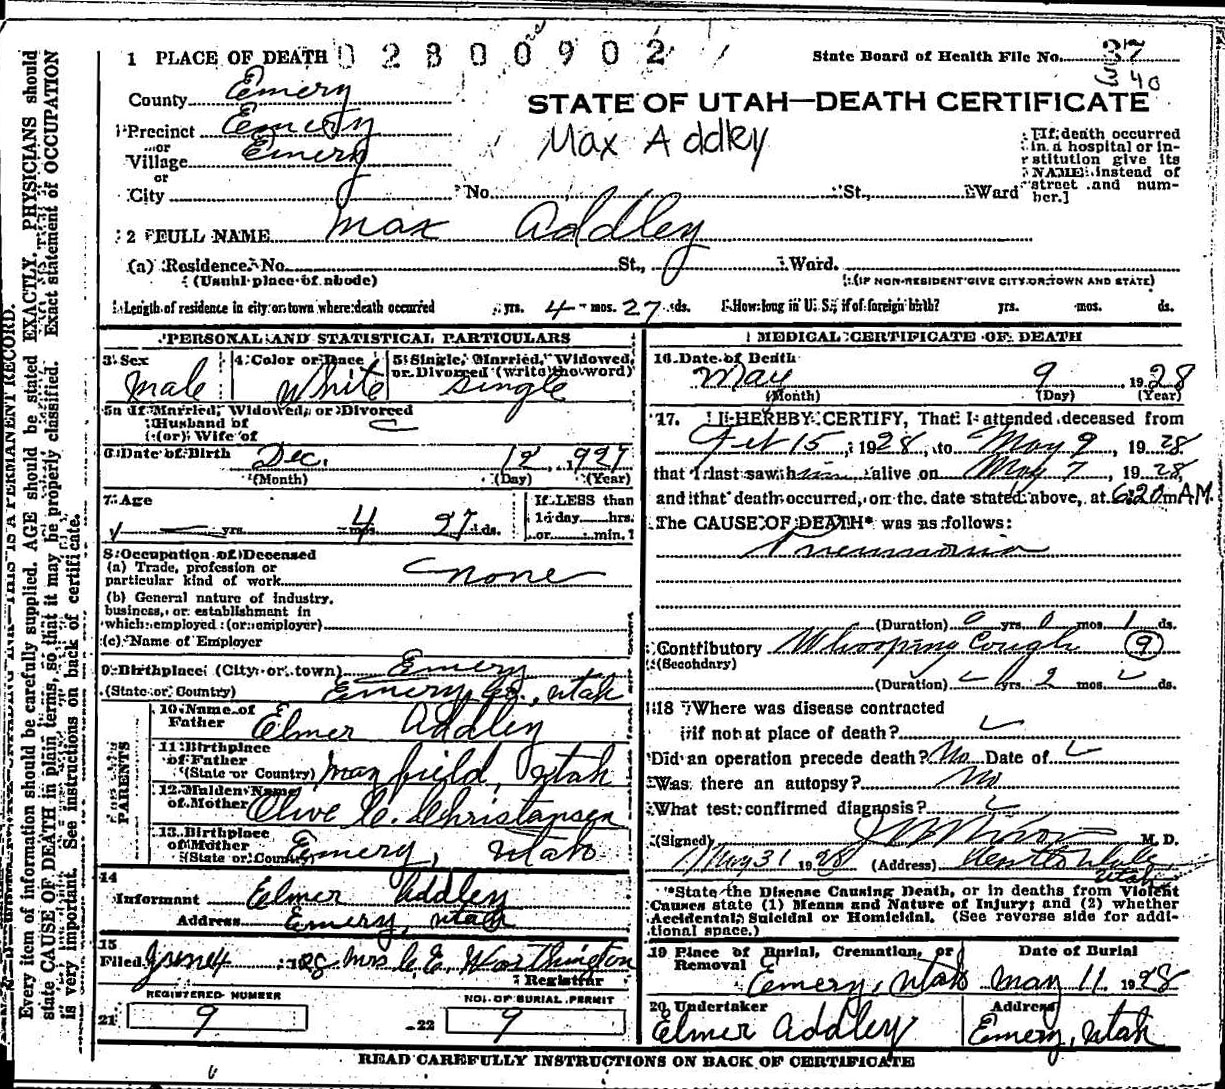 1 PLACE OF DEATH 0 2 8 0 0 9 0 2
State Board of Health File No. 37
40
County Emery
STATE OF UTAH—DEATH CERTIFICATE
Precinct Emery
or
Village Emery
or
City
Max Addley
No. St., Ward
[If death occurred
in a hospital or in-
stitution give its
NAME instead of
street and num-
ber.]
2 FULL NAME Max Addley
(a) Residence. No. St., Ward.
(Usual place of abode) (IF NON-RESIDENT GIVE CITY OR TOWN AND STATE)
Length of residence in city or town where death occurred yrs. 4 mos. 27 ds. How long in U. S., if of foreign birth? yrs. mos. ds.
PERSONAL AND STATISTICAL PARTICULARS
3 Sex 4 Color or Race 5 Single, Married, Widowed,
or Divorced (write the word)
Male White Single
5a If Married, Widowed, or Divorced
Husband of
(or) Wife of
6 Date of Birth Dec. 12, 1927
(Month) (Day) (Year)
7 Age If LESS than
1 day hrs.
yrs. 4 mos. 27 ds. or min.
8 Occupation of Deceased
(a) Trade, profession or
particular kind of work none
(b) General nature of industry,
business, or establishment in
which employed (or employer)
(c) Name of Employer
9 Birthplace (City or town) Emery
(State or Country) Emery Co., Utah
PARENTS
10 Name of
Father Elmer Addley
11 Birthplace
of Father
(State or Country) Utah
12 Maiden Name
of Mother Olive C. Christansen
13 Birthplace
of Mother
(State or Country) Emery, Utah
14
Informant Elmer Addley
Address Emery, Utah
15
Filed 1928 Mrs C. E. Worthington
Registrar
REGISTERED NUMBER NO. OF BURIAL PERMIT
21 9 22 9
MEDICAL CERTIFICATE OF DEATH
16 Date of Death
May 9 1928
(Month) (Day) (Year)
17. I HEREBY CERTIFY, That I attended deceased from
Feb 15, 1928, to May 9, 1928
that I last saw him alive on May 7, 1928,
and that death occurred, on the date stated above, at 6:20 m AM.
The CAUSE OF DEATH* was as follows:
Pneumonia
(Duration) 0 yrs 0 mos 1 ds.
Contributory Whooping Cough 9
(Secondary)
(Duration) yrs 2 mos ds.
18 Where was disease contracted
if not at place of death?
Did an operation precede death? No Date of
Was there an autopsy? No
What test confirmed diagnosis?
(Signed) M. D.
May 31 1928 (Address) Utah
*State the Disease Causing Death, or in deaths from Violent
Causes state (1) Means and Nature of Injury; and (2) whether
Accidental, Suicidal or Homicidal. (See reverse side for addi-
tional space.)
19 Place of Burial, Cremation, or Date of Burial
Removal
Emery, Utah May 11 1928
20 Undertaker Address
Elmer Addley Emery, Utah
READ CAREFULLY INSTRUCTIONS ON BACK OF CERTIFICATE
Every item of information should be carefully supplied. AGE should be stated EXACTLY. PHYSICIANS should
state CAUSE OF DEATH in plain terms, so that it may be properly classified. Exact statement of OCCUPATION
is very important. See instructions on back of certificate.
THIS IS A PERMANENT RECORD.